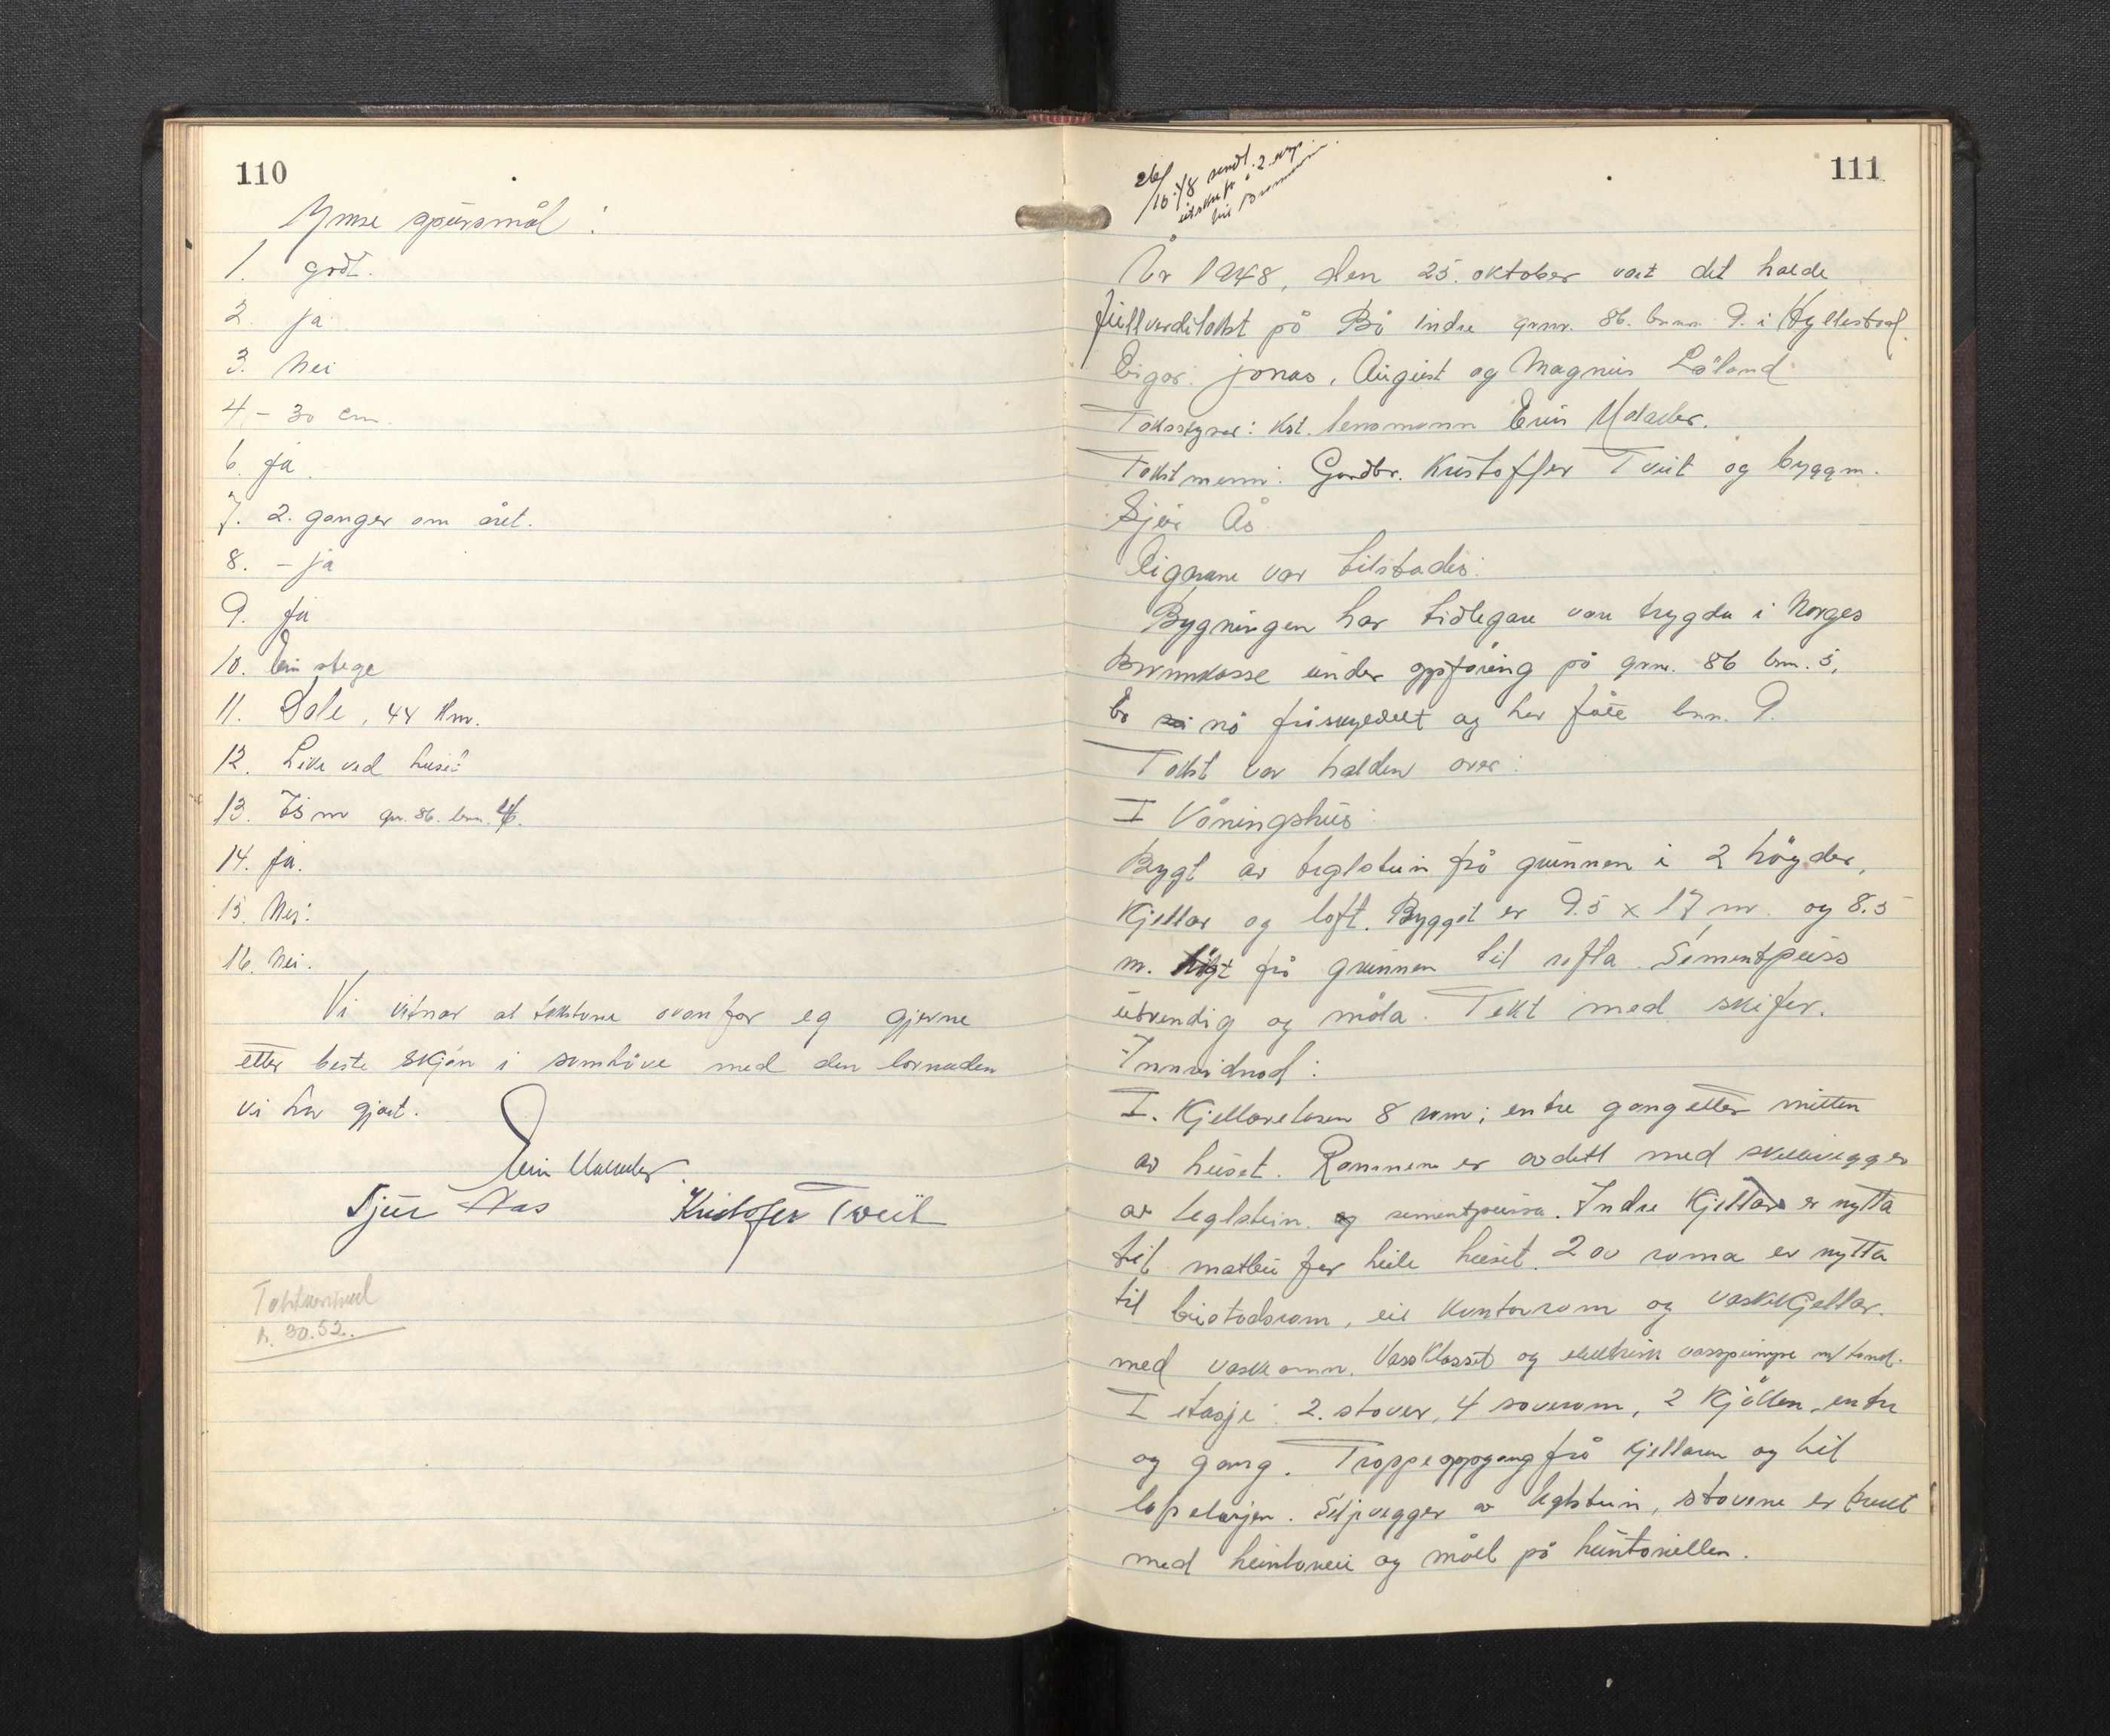 110
Ymse spursmål:
1. godt.
2. ja
3. Nei
4 - 30 cm.
6. ja.
7. 2. ganger om året.
8. - ja
9. ja
10. Ein stege
11. Dale, 44 Km.
12. Like ved huset
13. 75 m gnr. 86. bnr. 4.
14. ja.
15. Nei.
16. Nei.
Vi vitnar at takstane ovanfor eg gjerne
etter beste skjøn i samhöve med den
vi har gjort.
Sjur Aas Kristofer Tveit
kr. 30.52.
111
26/10.48 sendt
utskr. i 2 eks.
til
År 1948, den 25. oktober vart det halde
fullverditakst på Bø indre gnr. 86. bnr. 9. i Hyllestad.
Eigar: Jonas, August og Magnus Løland
Takststyrar: Kst. lensmann
Takstmenn: Gardbr. Kristoffer Tveit og byggm.
Sjur Ås.
Eigarane var tilstades.
Bygningen har tidlegare vore trygda i Norges
Brannkasse under oppføring på gnr. 86 bnr. 5,
Er nå fråskyldelt og har fått bnr. 9.
Takst var halden over:
I Våningshus:
Bygt av teglstein frå grunnen i 2 högder,
Kjellar og loft. Bygget er 9.5 x 17 m. og 8.5
m. högt frå grunnen til rafta. Sementpuss
utvendig og måla. Tekt med skifer.
Innreidnad:
I. Kjellaretasen 8 rom; entre gang etter mitten
av huset. Rommene er avdelt med skillevegger
av teglstein. og sementpussa. Indre Kjellar er nytta
til matbu for heile huset. 2 av roma er nytta
til bustadsrom, eit Kontorrom og vaskekjellar.
med vaskeomn. Vassklosset og elektrisk vasspumpe m/tank.
I etasje: 2. stover, 4 soverom, 2 Kjökken, entre
og gang. Trappeoppgang frå kjellaren og til
loftetasjen. Skiljvegger av teglstein, stovene er trekt
med huntonit og målt på huntonitten.